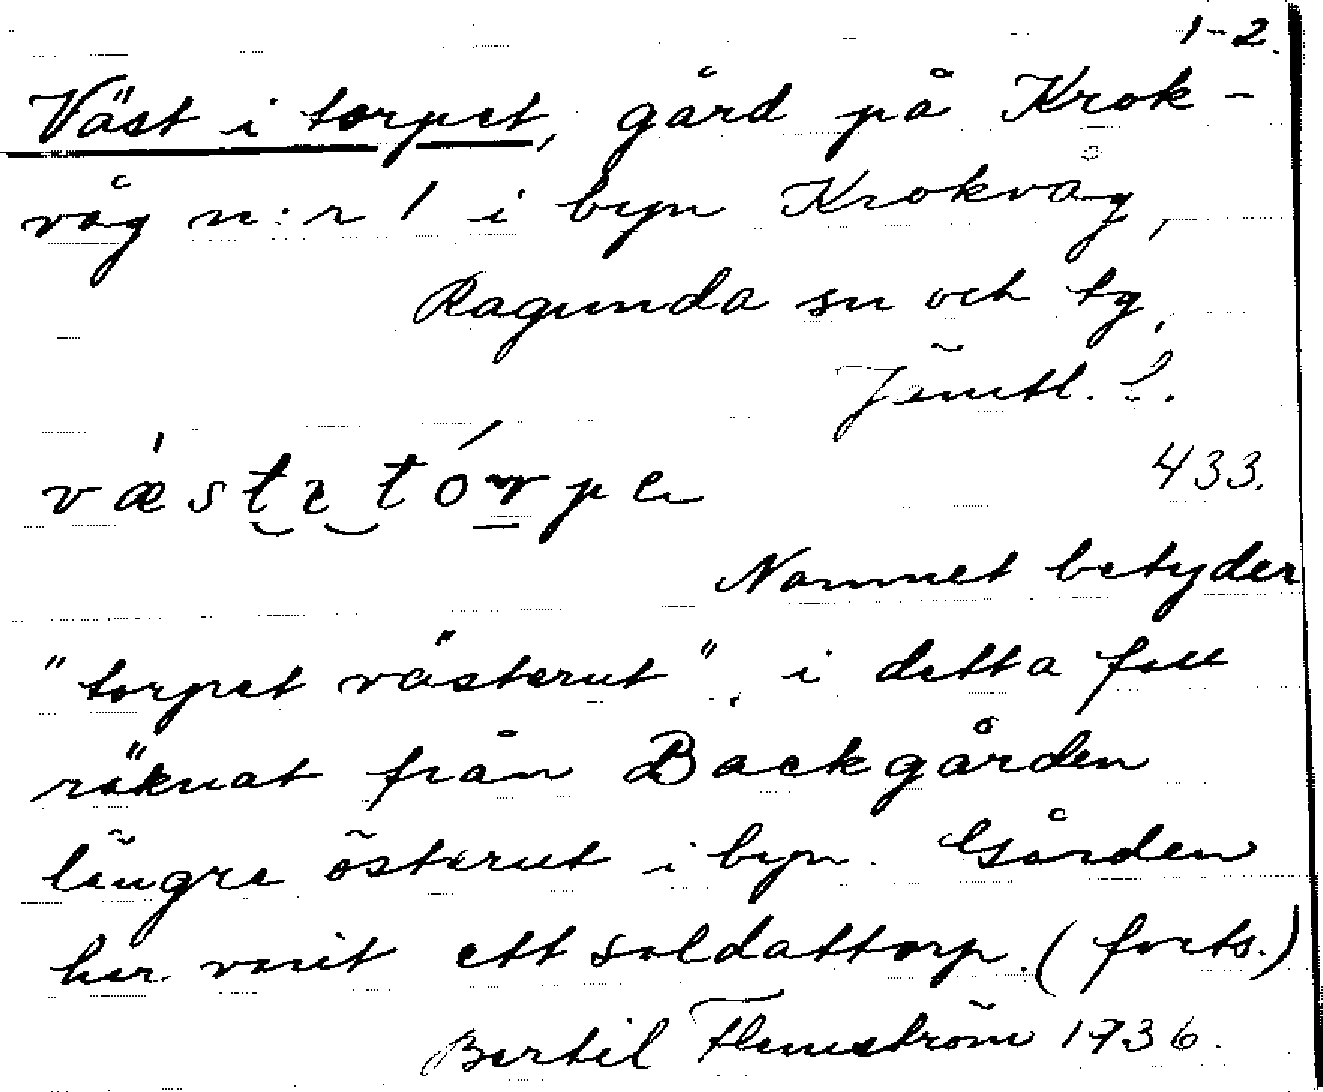 1-2.
Väst i torpet, gård på Krok-
våg n:r 1 i byn Krokvåg,
Ragunda sn och tg,
Jämtl. l.
433.
Namnet betyder
"torpet västerut", i detta fall
räknat från Backgården
längre österut i byn. Gården
har varit ett soldattorp. (forts.)
Bertil Flemström 1936.